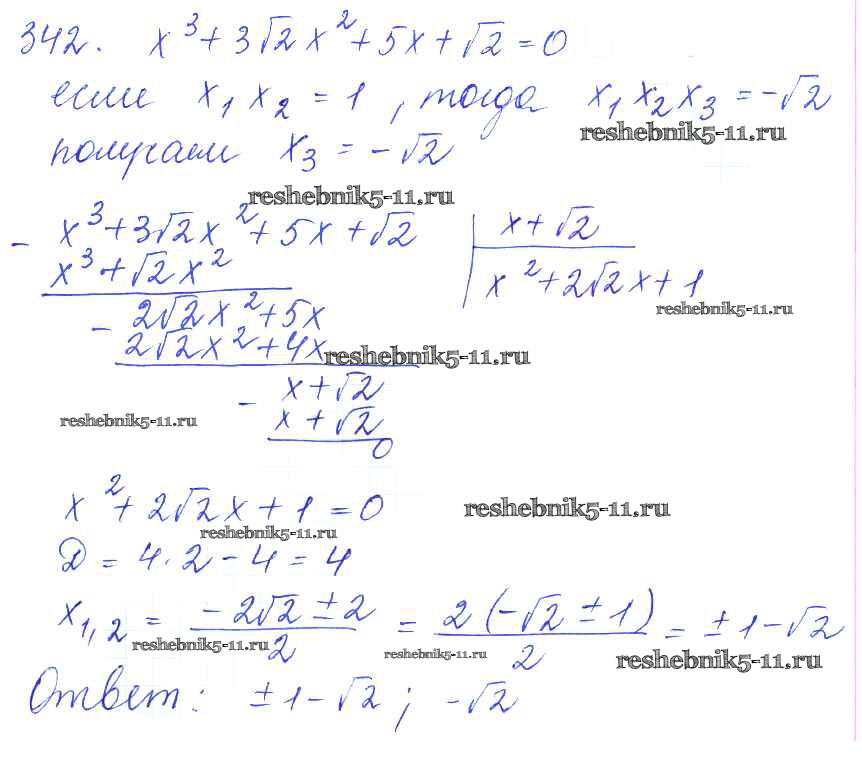 342. x³ + 3√2 x² + 5x + √2 = 0
если x₁ x₂ = 1 , тогда x₁ x₂ x₃ = -√2
reshebnik5-11.ru
получаем x₃ = -√2
reshebnik5-11.ru
- x³ + 3√2 x² + 5x + √2 | x + √2
x³ + √2 x² | x² + 2√2 x + 1
reshebnik5-11.ru
- 2√2 x² + 5x
2√2 x² + 4x
reshebnik5-11.ru
- x + √2
reshebnik5-11.ru
x + √2
0
x² + 2√2 x + 1 = 0
reshebnik5-11.ru
reshebnik5-11.ru
D = 4 · 2 - 4 = 4
x₁,₂ = (-2√2 ± 2)/2 = 2(-√2 ± 1)/2 = ±1 - √2
reshebnik5-11.ru
reshebnik5-11.ru
reshebnik5-11.ru
Ответ: ±1 - √2 ; -√2